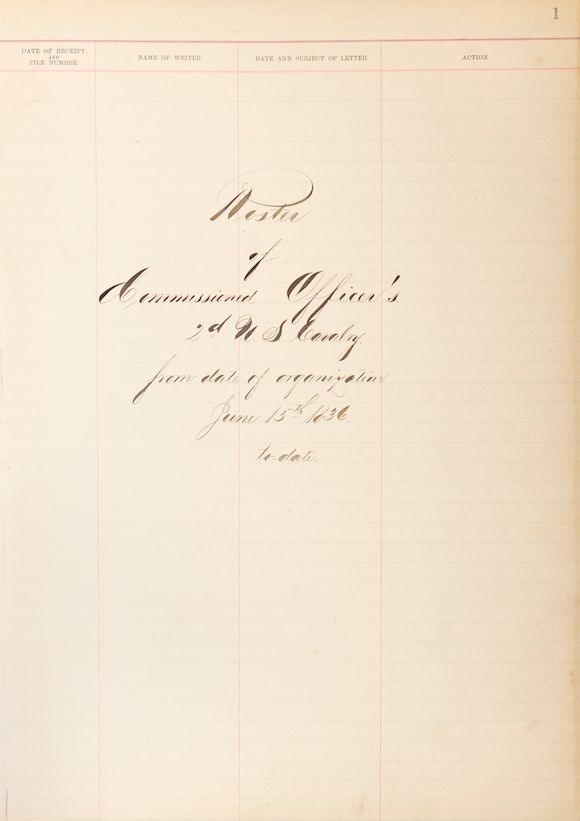 1
DATE OF RECEIPT
AND
FILE NUMBER
NAME OF WRITER
DATE AND SUBJECT OF LETTER
ACTION
Roster
of
Commissioned Officer's
2d U S Cavalry
from date of organization
June 15th 1836.
to-date.